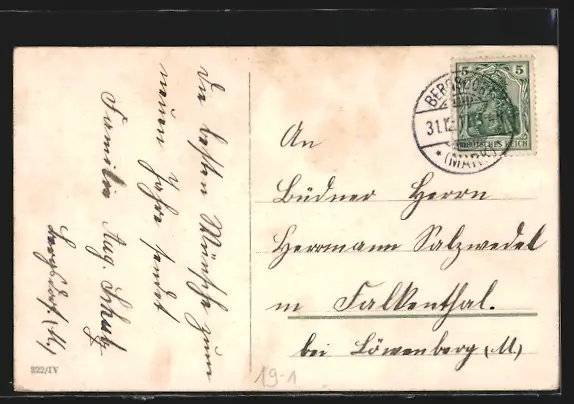 Die besten Wünsche zum
neuen Jahre sendet
Familie Aug. Schulz
Bergsdorf (M.)
An
Büdner Herrn
Herrmann Salzwedel
in Falkenthal.
bei Löwenberg (M.)
5 5
DEUTSCHES REICH
BERGSDORF
31.12.
* (MARK)
322/IV
19-1